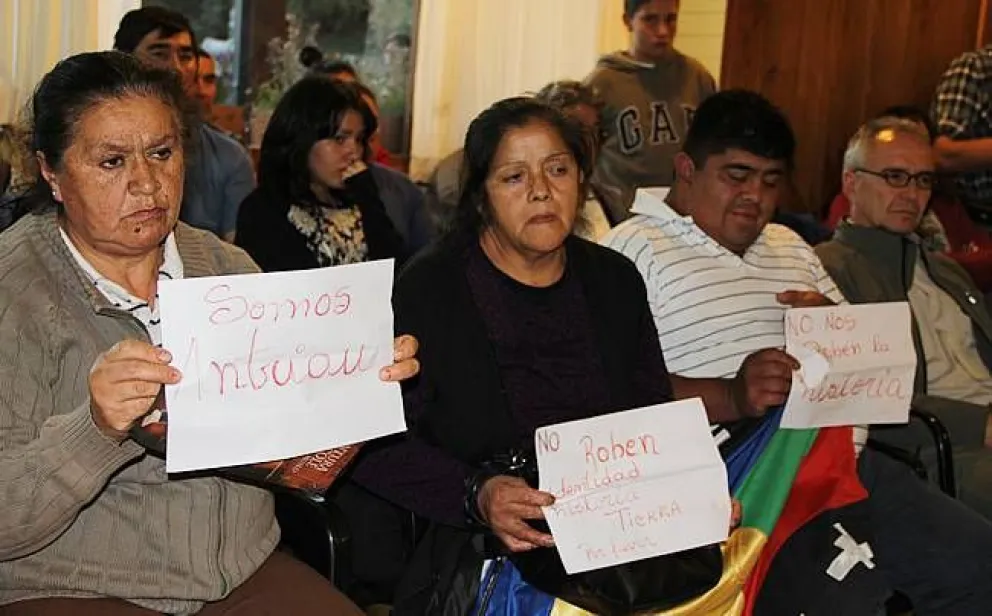 Somos
Antuiau
NO Roben
identidad
historia
TIERRA
NO NOS
Robén la
historia
GAP